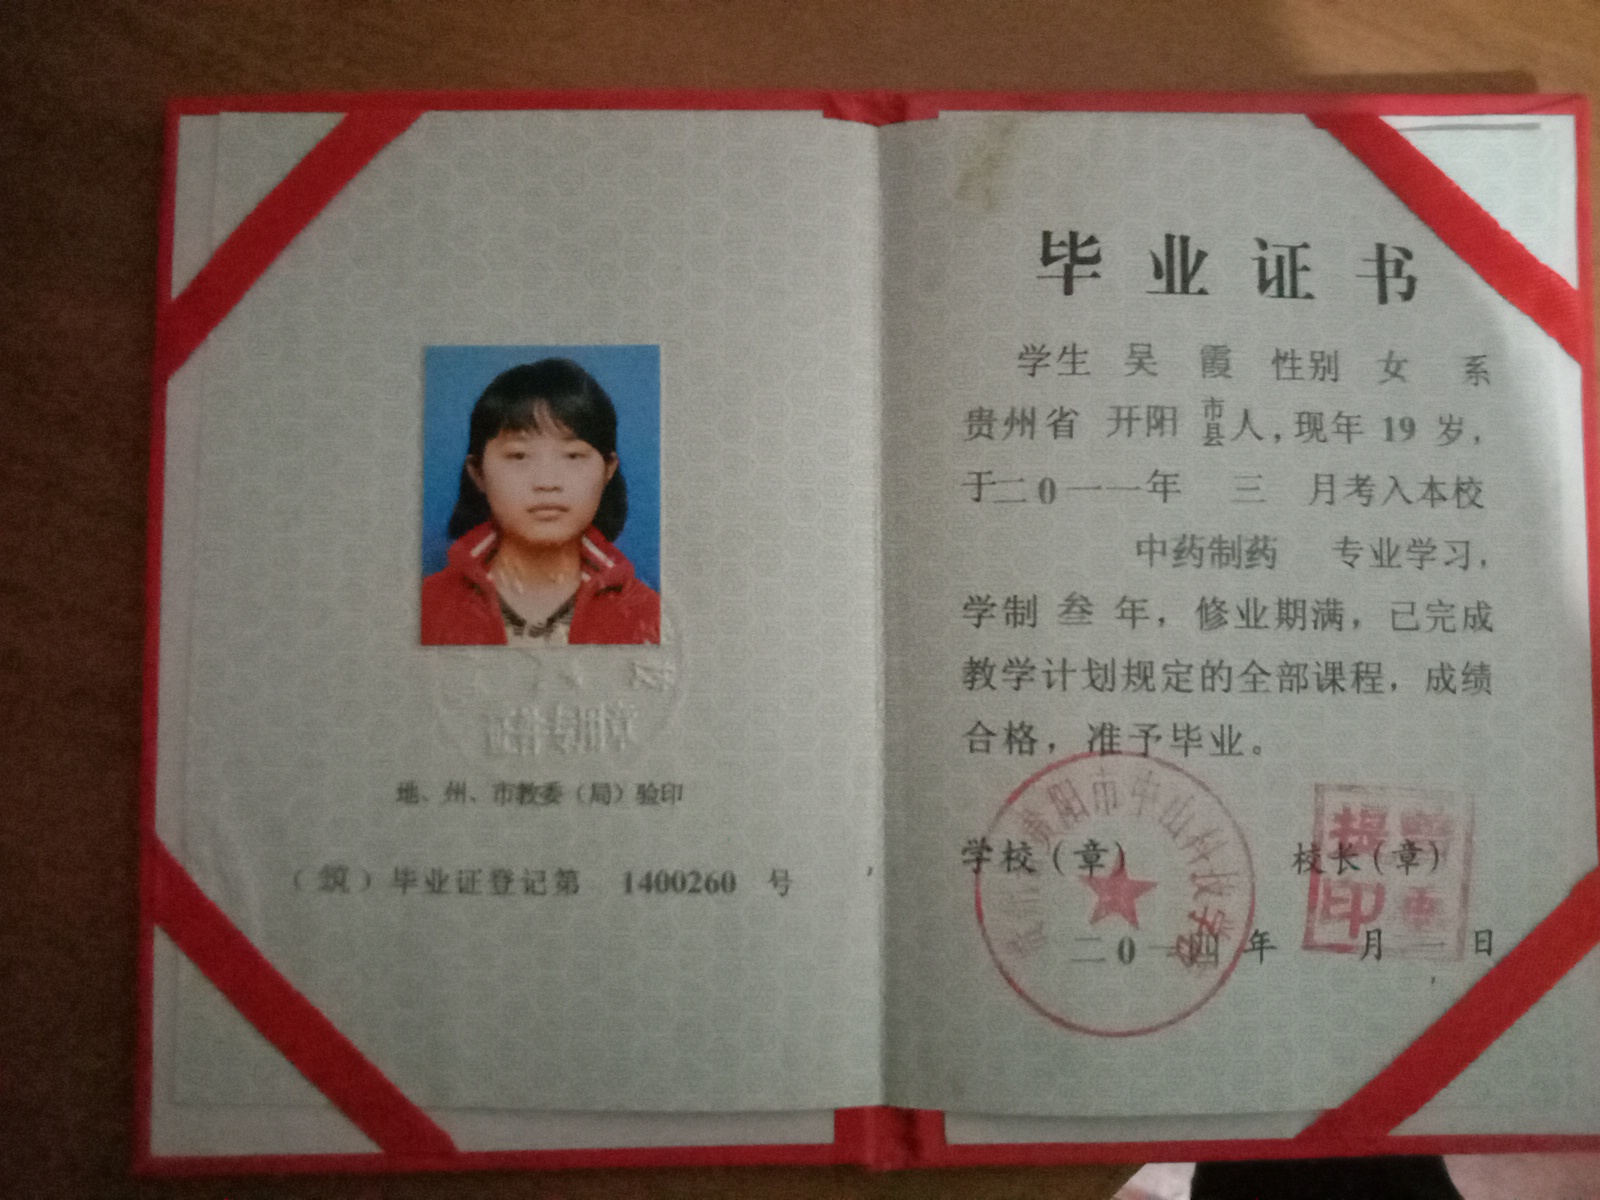 地、州、市教委（局）验印
（筑）毕业证登记第 1400260 号
毕业证书
学生 吴 霞 性别 女 系
贵州省 开阳 市县人，现年 19 岁，
于二0一一年 三 月考入本校
中药制药 专业学习，
学制 叁 年，修业期满，已完成
教学计划规定的全部课程，成绩
合格，准予毕业。
贵阳市中山科技学校
学校（章） 校长（章）
二0一四 年 月 日